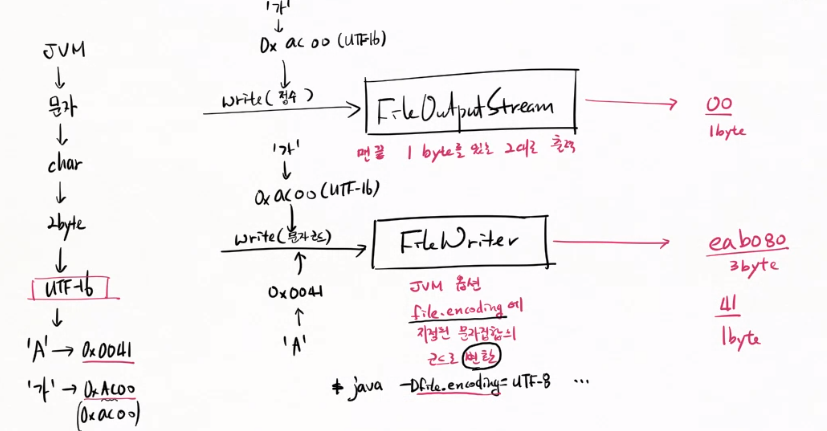 JVM
문자
char
2byte
UTF-16
'A' → 0x0041
'가' → 0xAC00
(0xac00)
'가'
0x ac00 (UTF16)
write( 정수 )
FileOutputStream
00
1byte
맨끝 1 byte를 있는 그대로 출력
'가'
0xac00 (UTF-16)
write( 문자코드 )
FileWriter
eab080
3byte
0x0041
'A'
JVM 옵션
file.encoding에
지정된 문자집합의
코드로 변환
41
1byte
* java -Dfile.encoding=UTF-8 ...